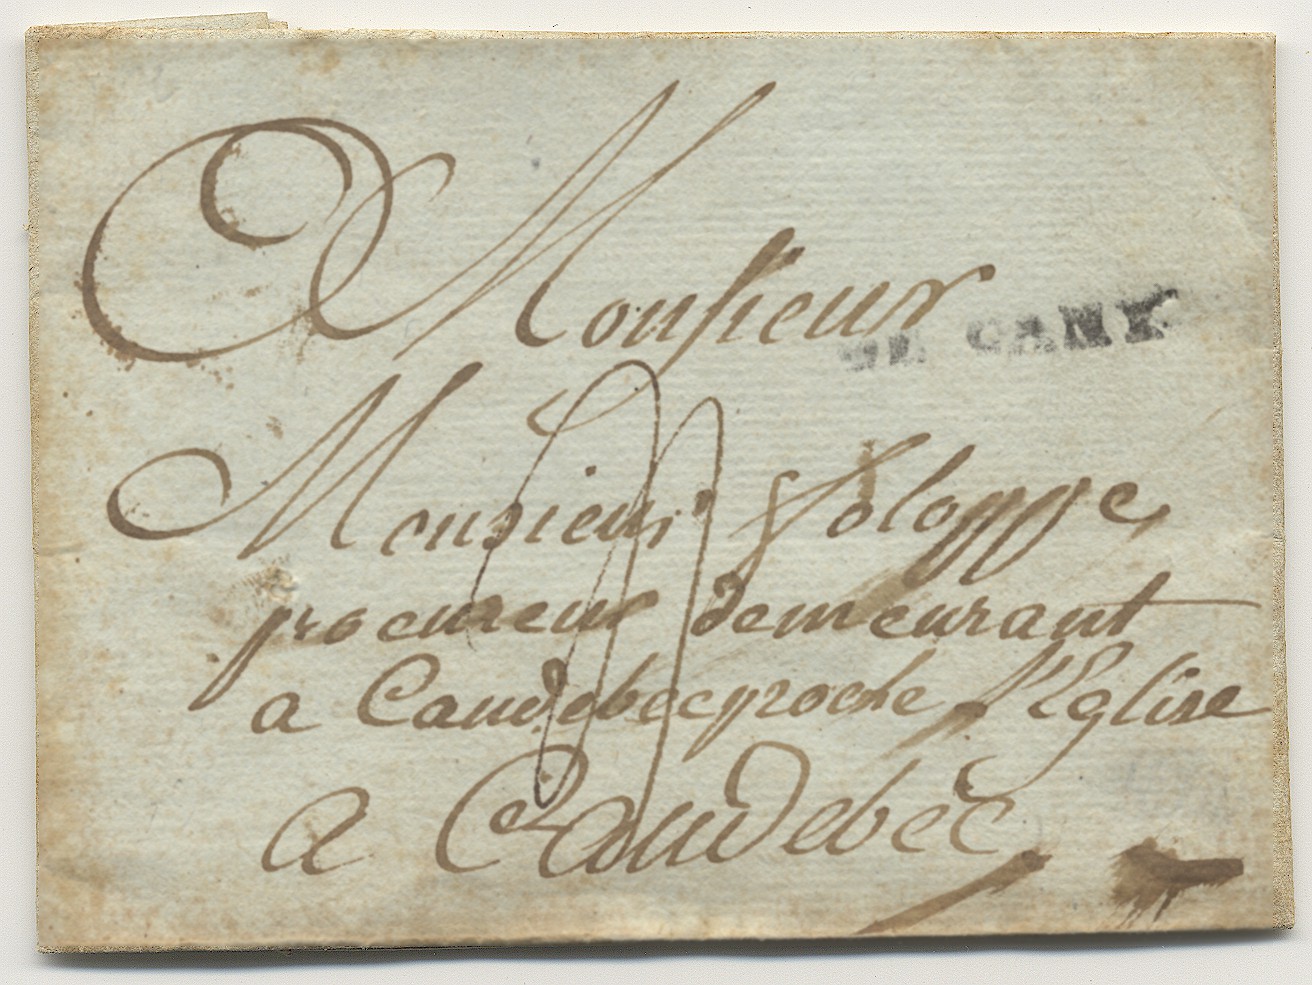 Monsieur
DE CANY
Monsieur
procureur demeurant
a Caudebec proche l'Eglise
a Caudebec